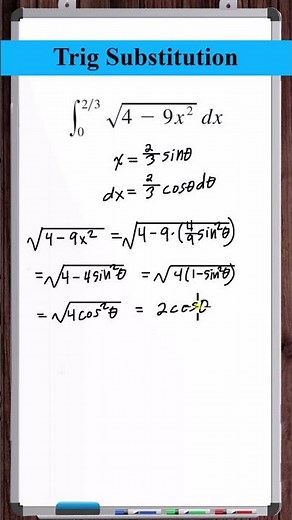 Trig Substitution
∫₀^{2/3} √(4 − 9x²) dx
x = 2/3 sinθ
dx = 2/3 cosθdθ
√(4−9x²) = √(4−9·(4/9 sin²θ))
= √(4−4sin²θ) = √(4(1−sin²θ))
= √(4cos²θ) = 2cosθ